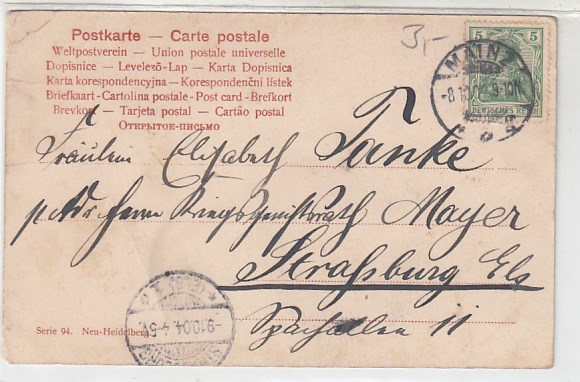 Postkarte — Carte postale
Weltpostverein — Union postale universelle
Dopisnice — Levelező-Lap — Karta Dopisnica
Karta korespondencyjna — Korespondenční lístek
Briefkaart - Cartolina postale - Post card - Brefkort
Brevkort — Tarjeta postal — Cartão postal
Открытое-письмо
3,-
5 5
MAINZ
DEUTSCHES REICH
Fräulein Elisabeth Tanke
p. Adr. Herrn Kriegsgerichtsrath Mayer
Straßburg Els
11
9.10.04.
Serie 94. Neu-Heidelberg